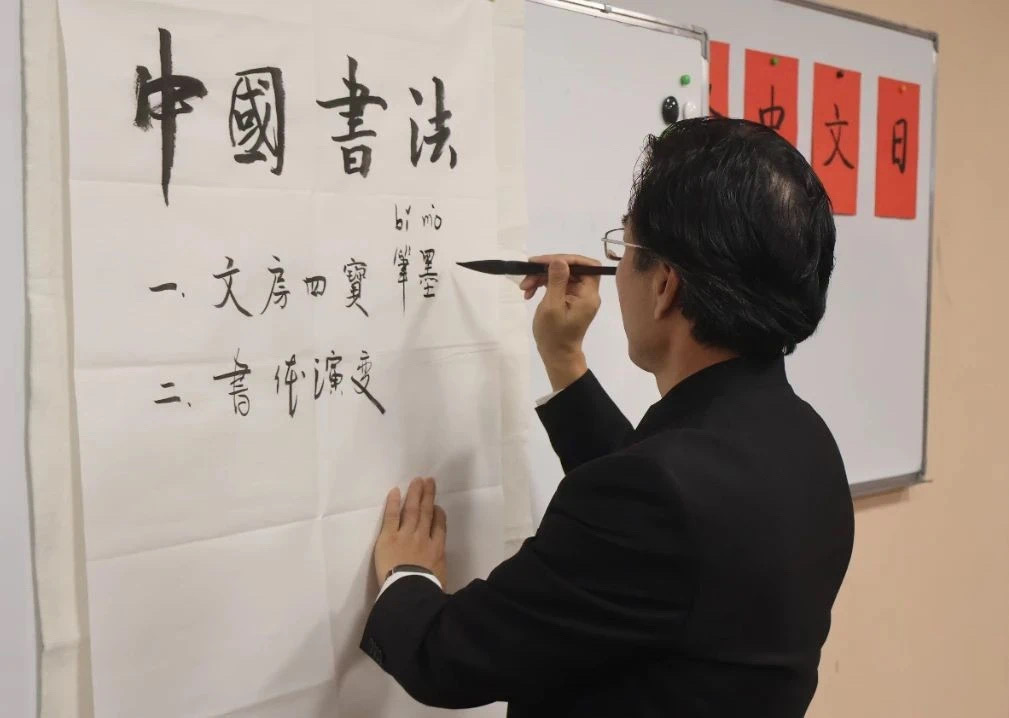 中國書法
bǐ mò
一、文房四寶 筆墨
二、書体演变
中文日